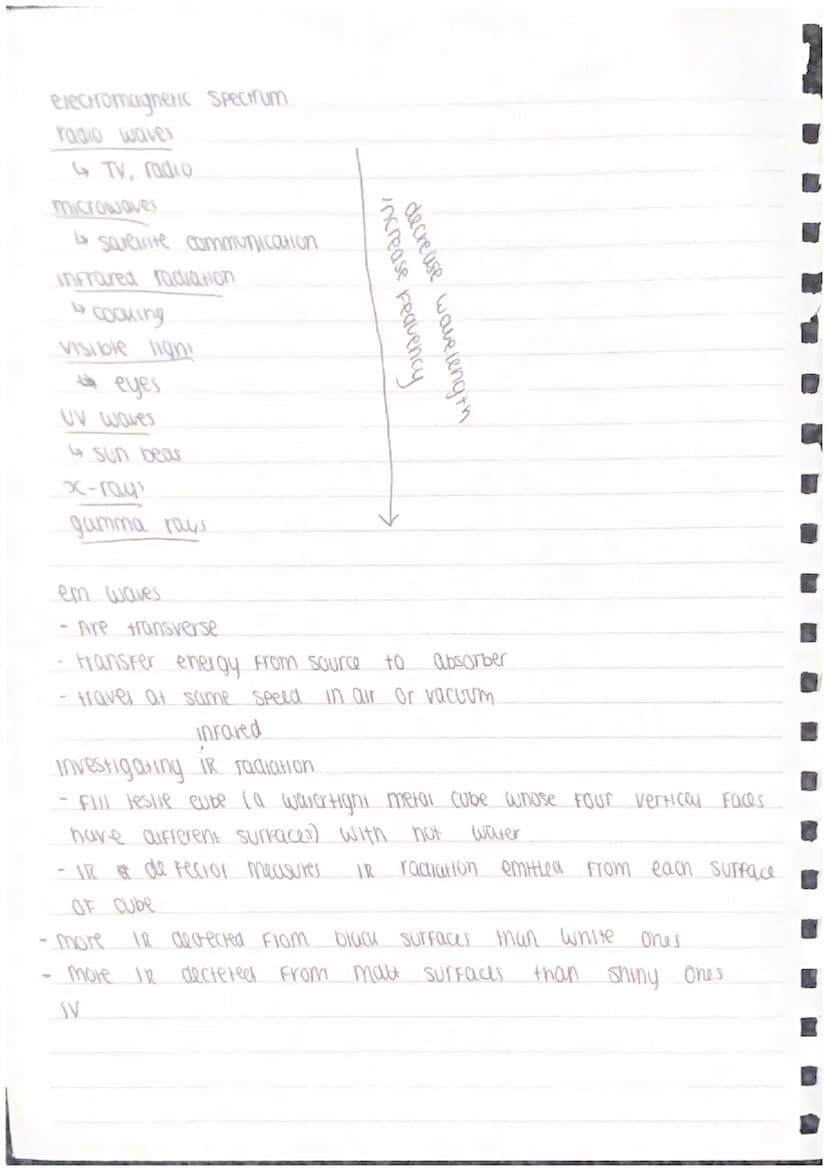 electromagnetic spectrum
radio waves
↳ TV, radio
microwaves
↳ satellite communication
infrared radiation
↳ cooking
visible light
↳ eyes
UV waves
↳ sun beds
x-rays
gamma rays
decrease wavelength
increase frequency
em waves
- Are transverse
- transfer energy from source to absorber
- travel at same speed in air or vacuum
infrared
investigating IR radiation
- Fill leslie cube (a watertight metal cube whose four vertical faces
have different surfaces) with hot water
- IR detector measures IR radiation emitted from each surface
of cube
- more IR detected from black surfaces than white ones
- more IR detected from matt surfaces than shiny ones